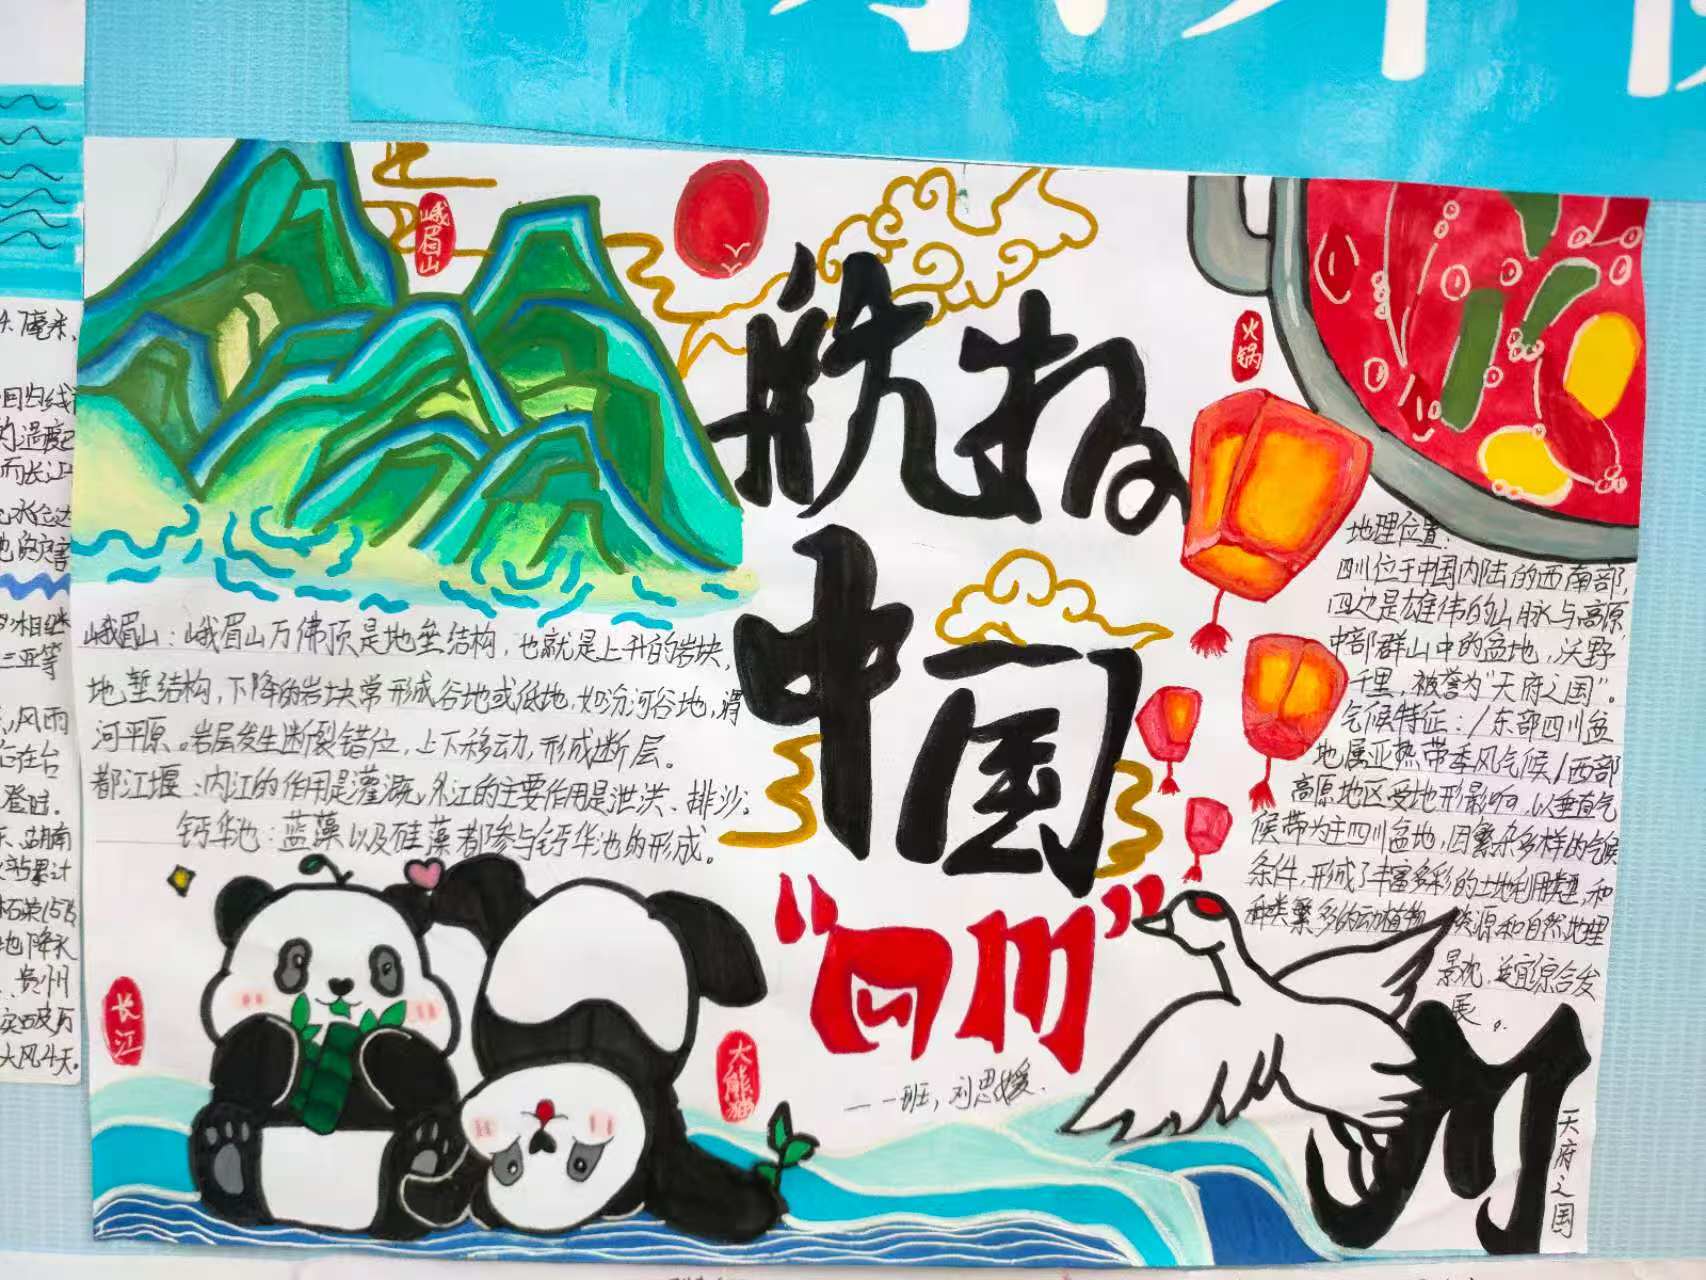 4.7毫米,
回归线
的温度
而长江
水位达
三亚等
风雨
在台
登陆.
湖南
累计
地降水
贵州
大风4天.
峨眉山
火锅
航拍
中国
“四川”
一一班,刘思媛.
峨眉山:峨眉山万佛顶是地垒结构,也就是上升的岩块,
地堑结构,下降的岩块常形成谷地或低地,如汾河谷地,渭
河平原。岩层发生断裂错位,上下移动,形成断层。
都江堰:内江的作用是灌溉,外江的主要作用是泄洪、排沙。
钙华池:蓝藻以及硅藻都参与钙华池的形成。
地理位置:
四川位于中国内陆的西南部,
四边是雄伟的山脉与高原,
中部群山中的盆地,沃野
千里,被誉为“天府之国”。
气候特征:/东部四川盆
地属亚热带季风气候/西部
高原地区受地形影响,以垂直气
候带为主四川盆地,因繁杂多样的气候
条件,形成了丰富多彩的土地利用类型,和
种类繁多的动植物资源和自然地理
景观,适宜综合发
展。
长江
大熊猫
川
天府之国